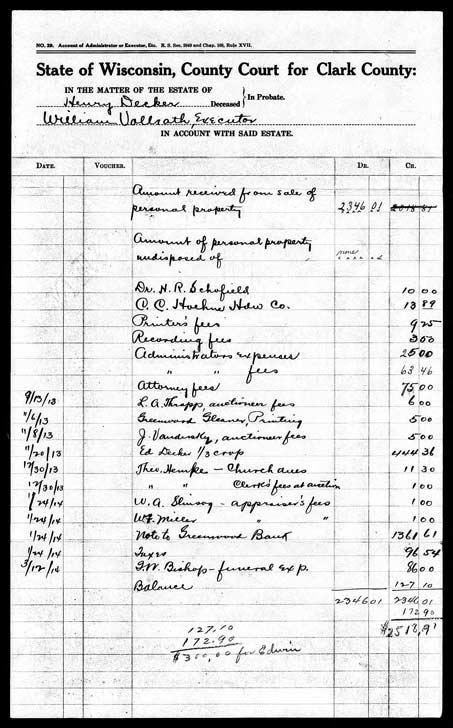 NO. 29. Account of Administrator or Executor, Etc. R. S. Sec.
State of Wisconsin, County Court for Clark County:
IN THE MATTER OF THE ESTATE OF
Henry Decker Deceased } In Probate.
William Vollrath, Executor
IN ACCOUNT WITH SAID ESTATE.
DATE. VOUCHER. DR. CR.
Amount received from sale of
personal property 2346 01
Amount of personal property
undisposed of none
Dr. H. R. Schofield 10 00
C. C. Hoehne Hdw Co. 13 89
Printer's fees 9 25
Recording fees 3 50
Administrators expenses 25 00
" " fees 63 46
Attorney fees 75 00
9/13/13 L. A. Thrapp, auctioneer fees 6 00
11/6/13 Greenwood Gleaner, Printing 5 00
11/8/13 J. Vandersky, auctioneer fees 5 00
11/20/13 Ed Decker 1/3 crop 444 36
12/30/13 Theo. Hempke - Church dues 11 30
12/30/13 " " Clerk's fees at auction 1 00
1/24/14 W. A. - appraiser's fees 1 00
1/24/14 Wm Miller " " 1 00
1/24/14 Note to Greenwood Bank 1361 61
1/24/14 Taxes 96 54
3/12/14 F. W. Bishop - funeral exp. 86 00
Balance 127 10
2346 01 2346 01
172 90
$2518,91
127.10
172.90
$300,00 for Edwin